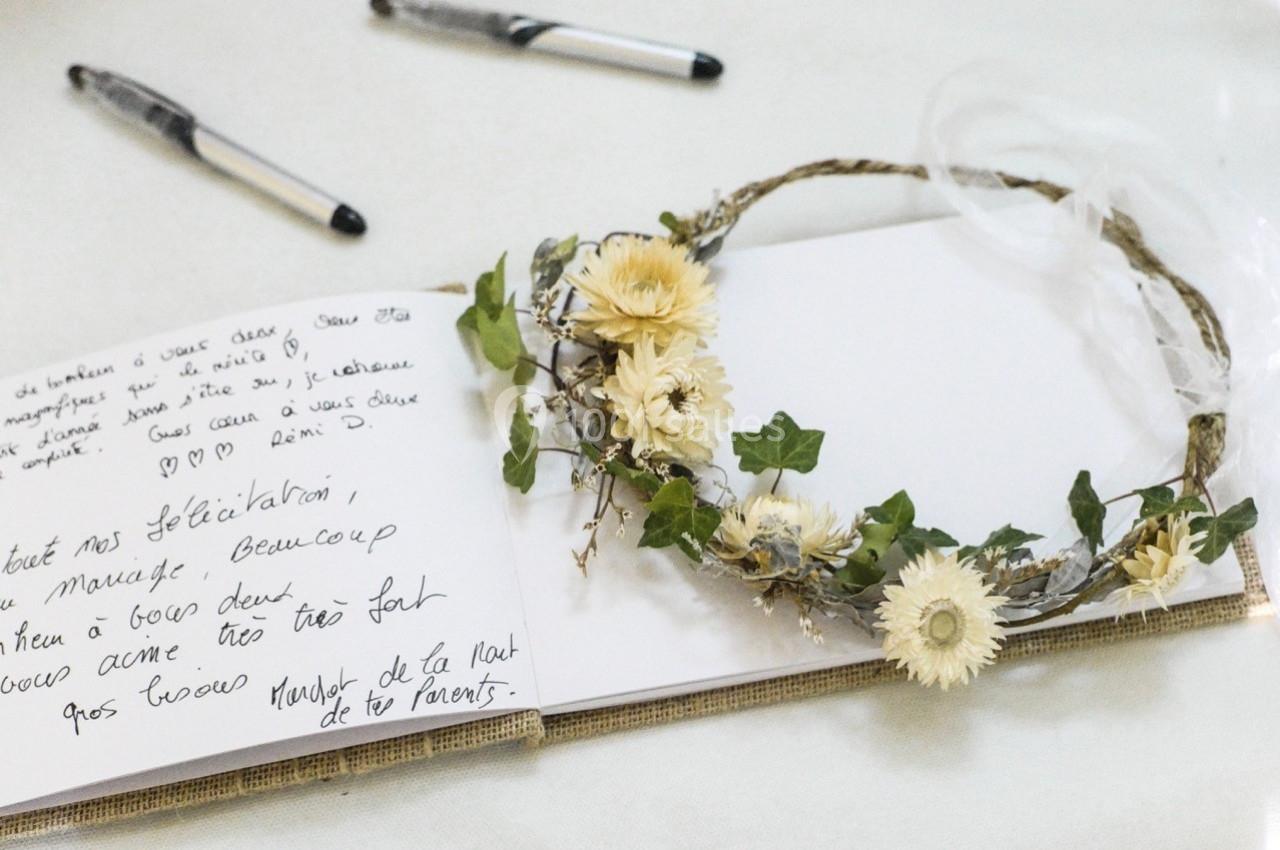 de bonheur à vous deux, vous êtes
magnifiques qui le mérite ♡,
d'année sans s'être vu, je retrouve
complicité. Gros cœur à vous deux
♡♡♡ Rémi D.
toute nos félicitation,
mariage, Beaucoup
à vous deux
vous aime très très fort
gros bisous
de la part
de tes Parents.
1001 salles